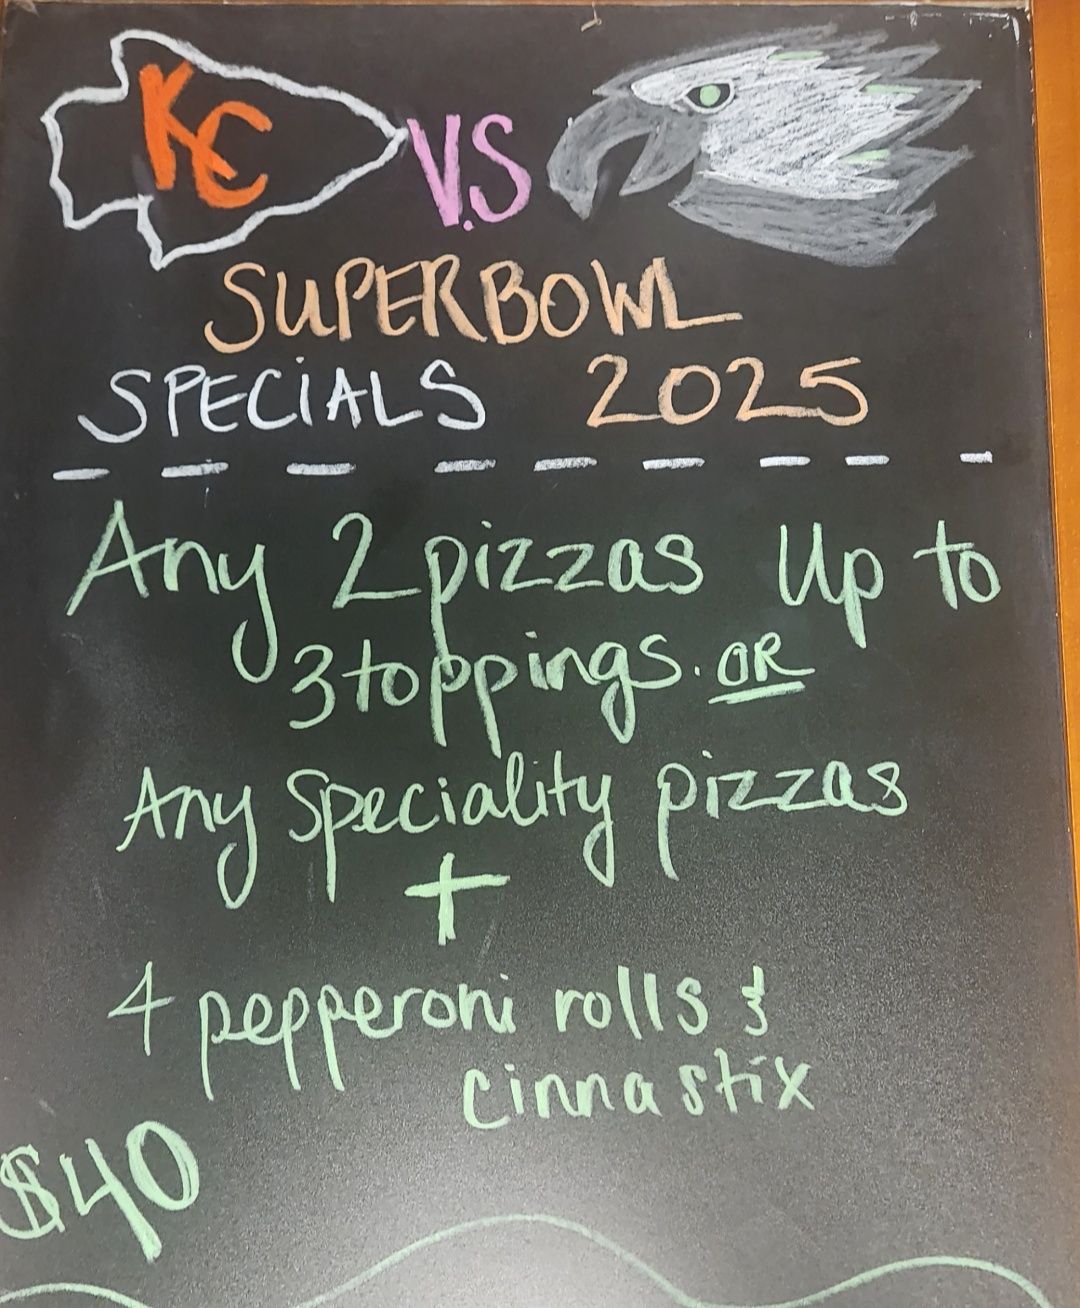 KC V.S
SUPERBOWL
SPECiALS 2025
Any 2 pizzas Up to
3 toppings. OR
Any Speciality pizzas
+
4 pepperoni rolls &
cinnastix
$40